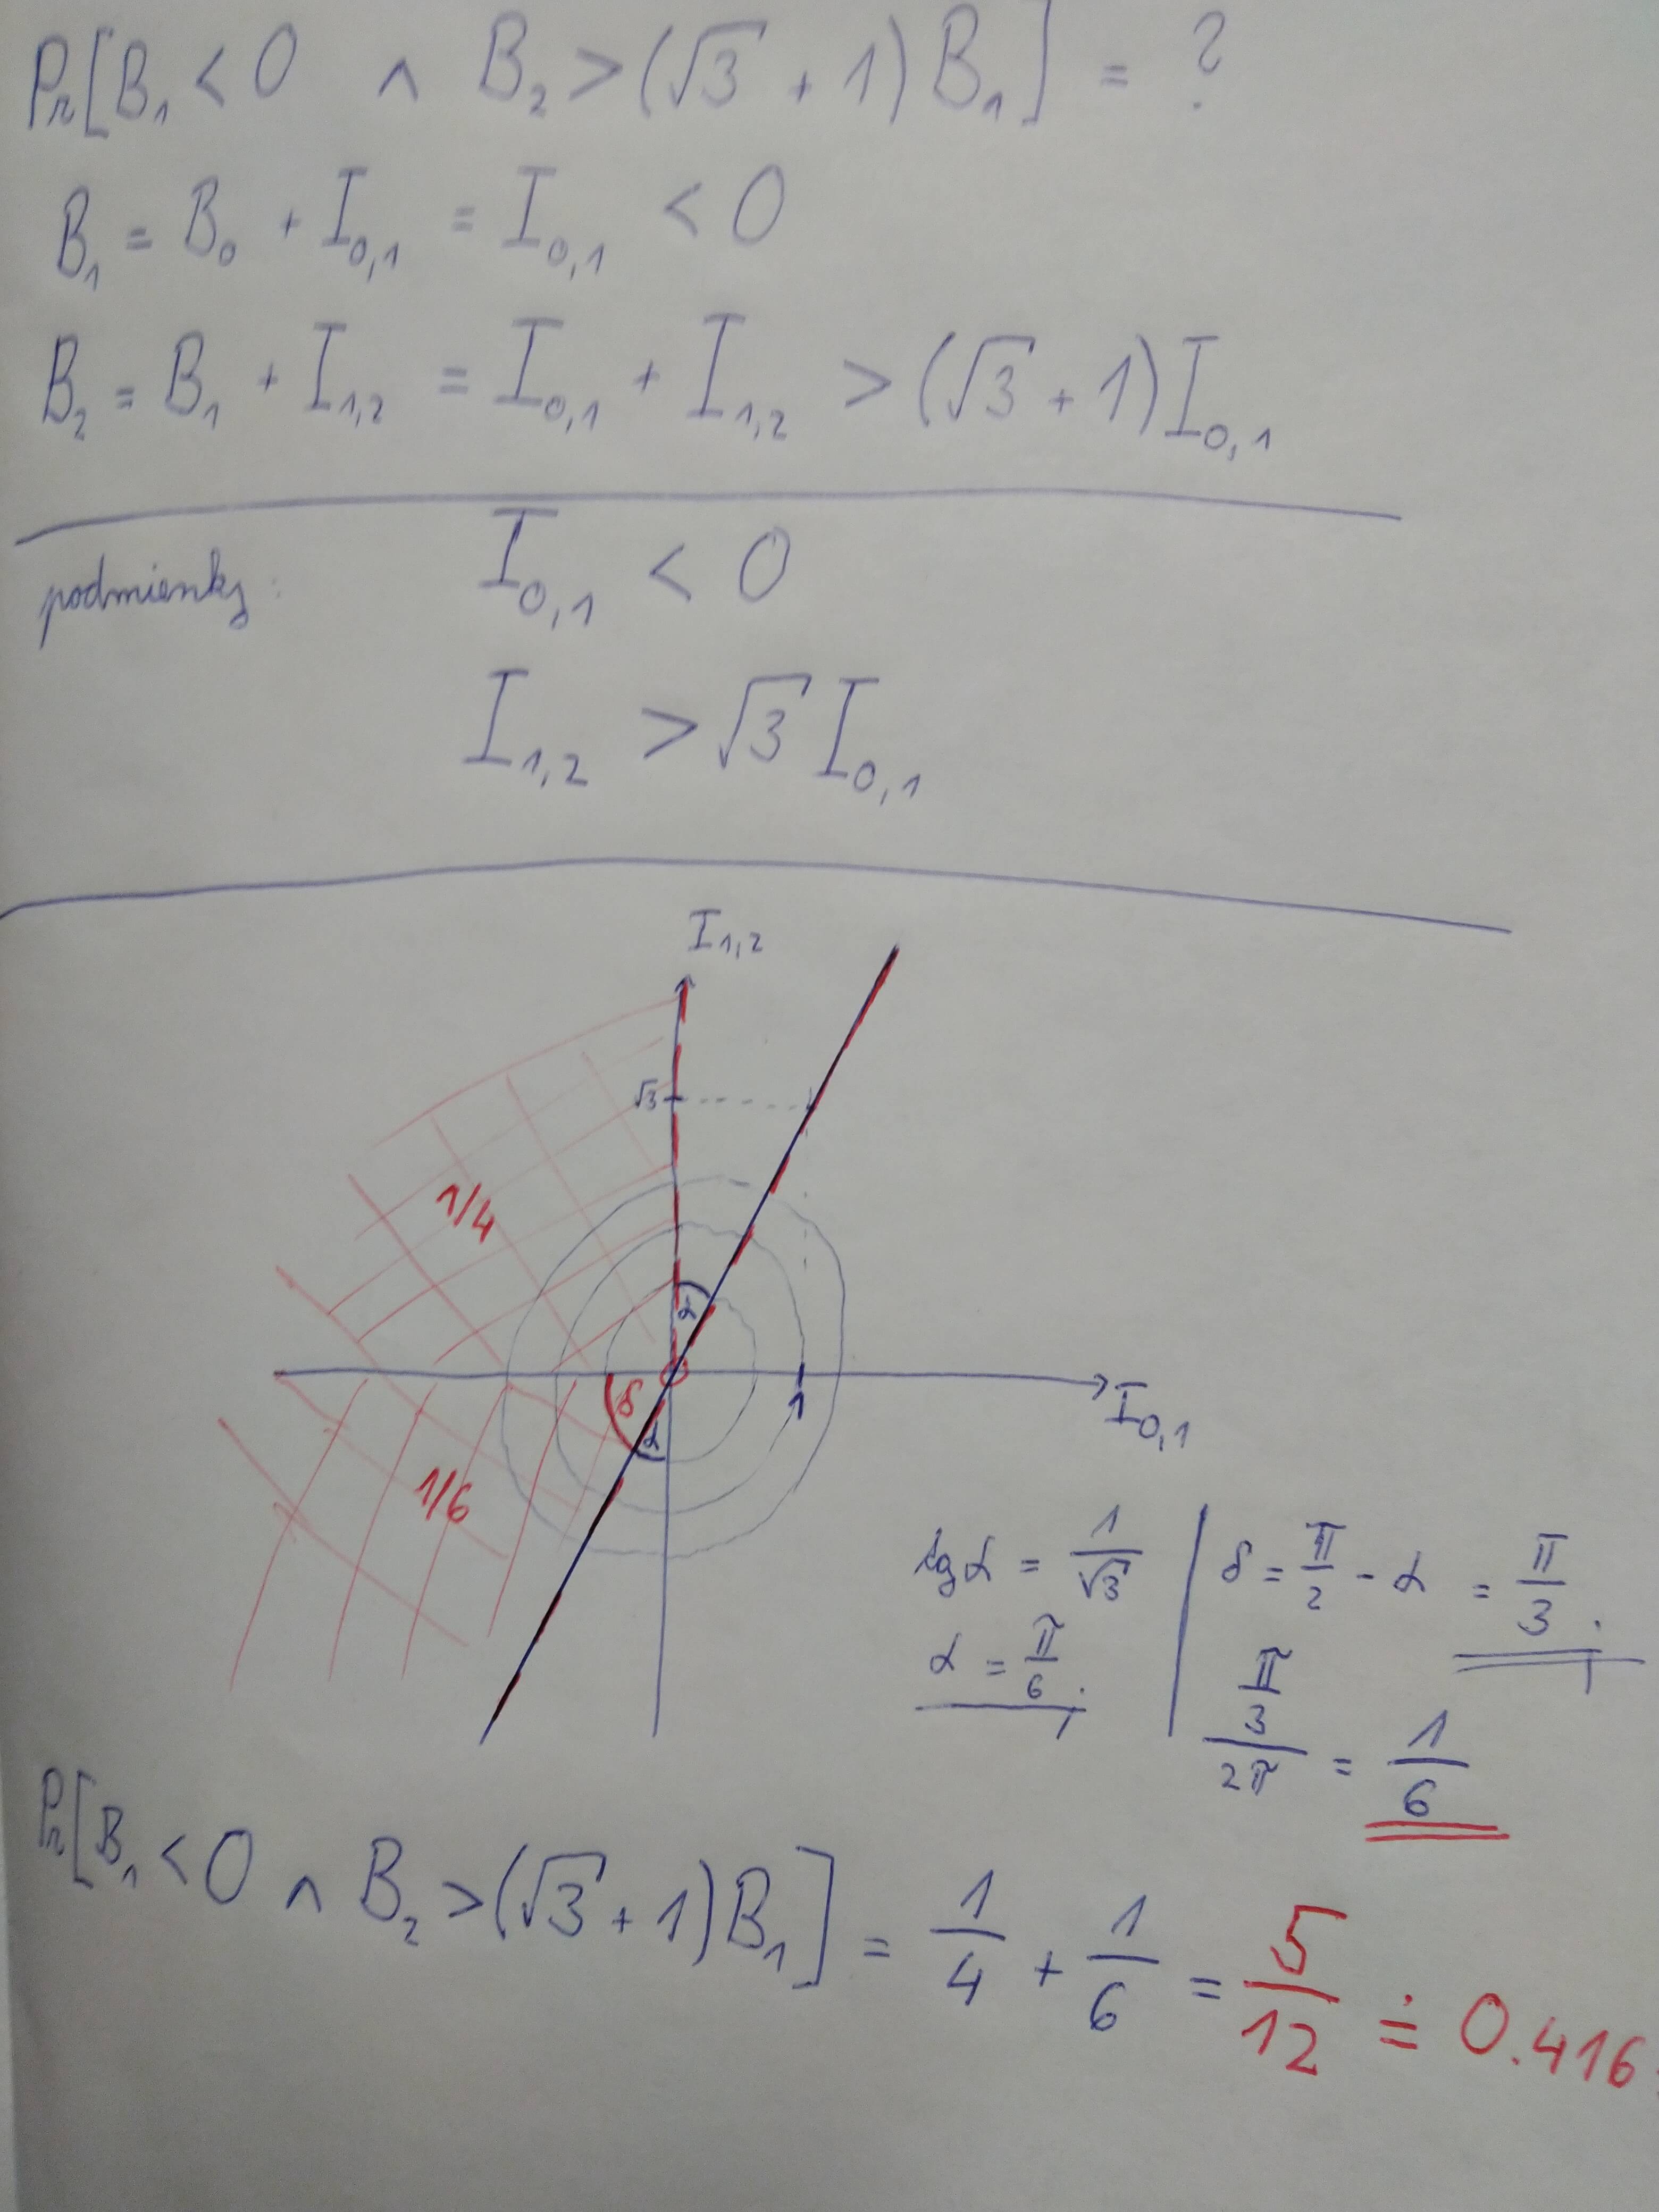 Pr[B₁ < 0 ∧ B₂ > (√3 + 1) B₁] = ?
B₁ = B₀ + I₀,₁ = I₀,₁ < 0
B₂ = B₁ + I₁,₂ = I₀,₁ + I₁,₂ > (√3 + 1) I₀,₁
podmienky: I₀,₁ < 0
I₁,₂ > √3 I₀,₁
I₁,₂
√3
1/4
α
δ
α
1
I₀,₁
1/6
tg α = 1/√3
α = π/6.
δ = π/2 - α = π/3.
(π/3)/(2π) = 1/6
Pr[B₁ < 0 ∧ B₂ > (√3 + 1) B₁] = 1/4 + 1/6 = 5/12 ≐ 0.416